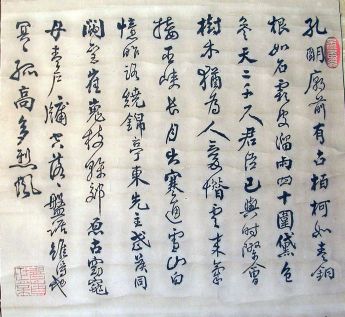 孔明廟前有古柏柯如青銅
根如石霜皮溜雨四十圍黛色
參天二千尺君臣已與時際會
樹木猶為人愛惜雲來氣
接巫峽長月出寒通雪山白
憶昨路繞錦亭東先主武侯同
閟宮崔嵬枝幹郊原古窈窕
丹青戶牖空落〻盤踞雖得地
冥〻孤高多烈風